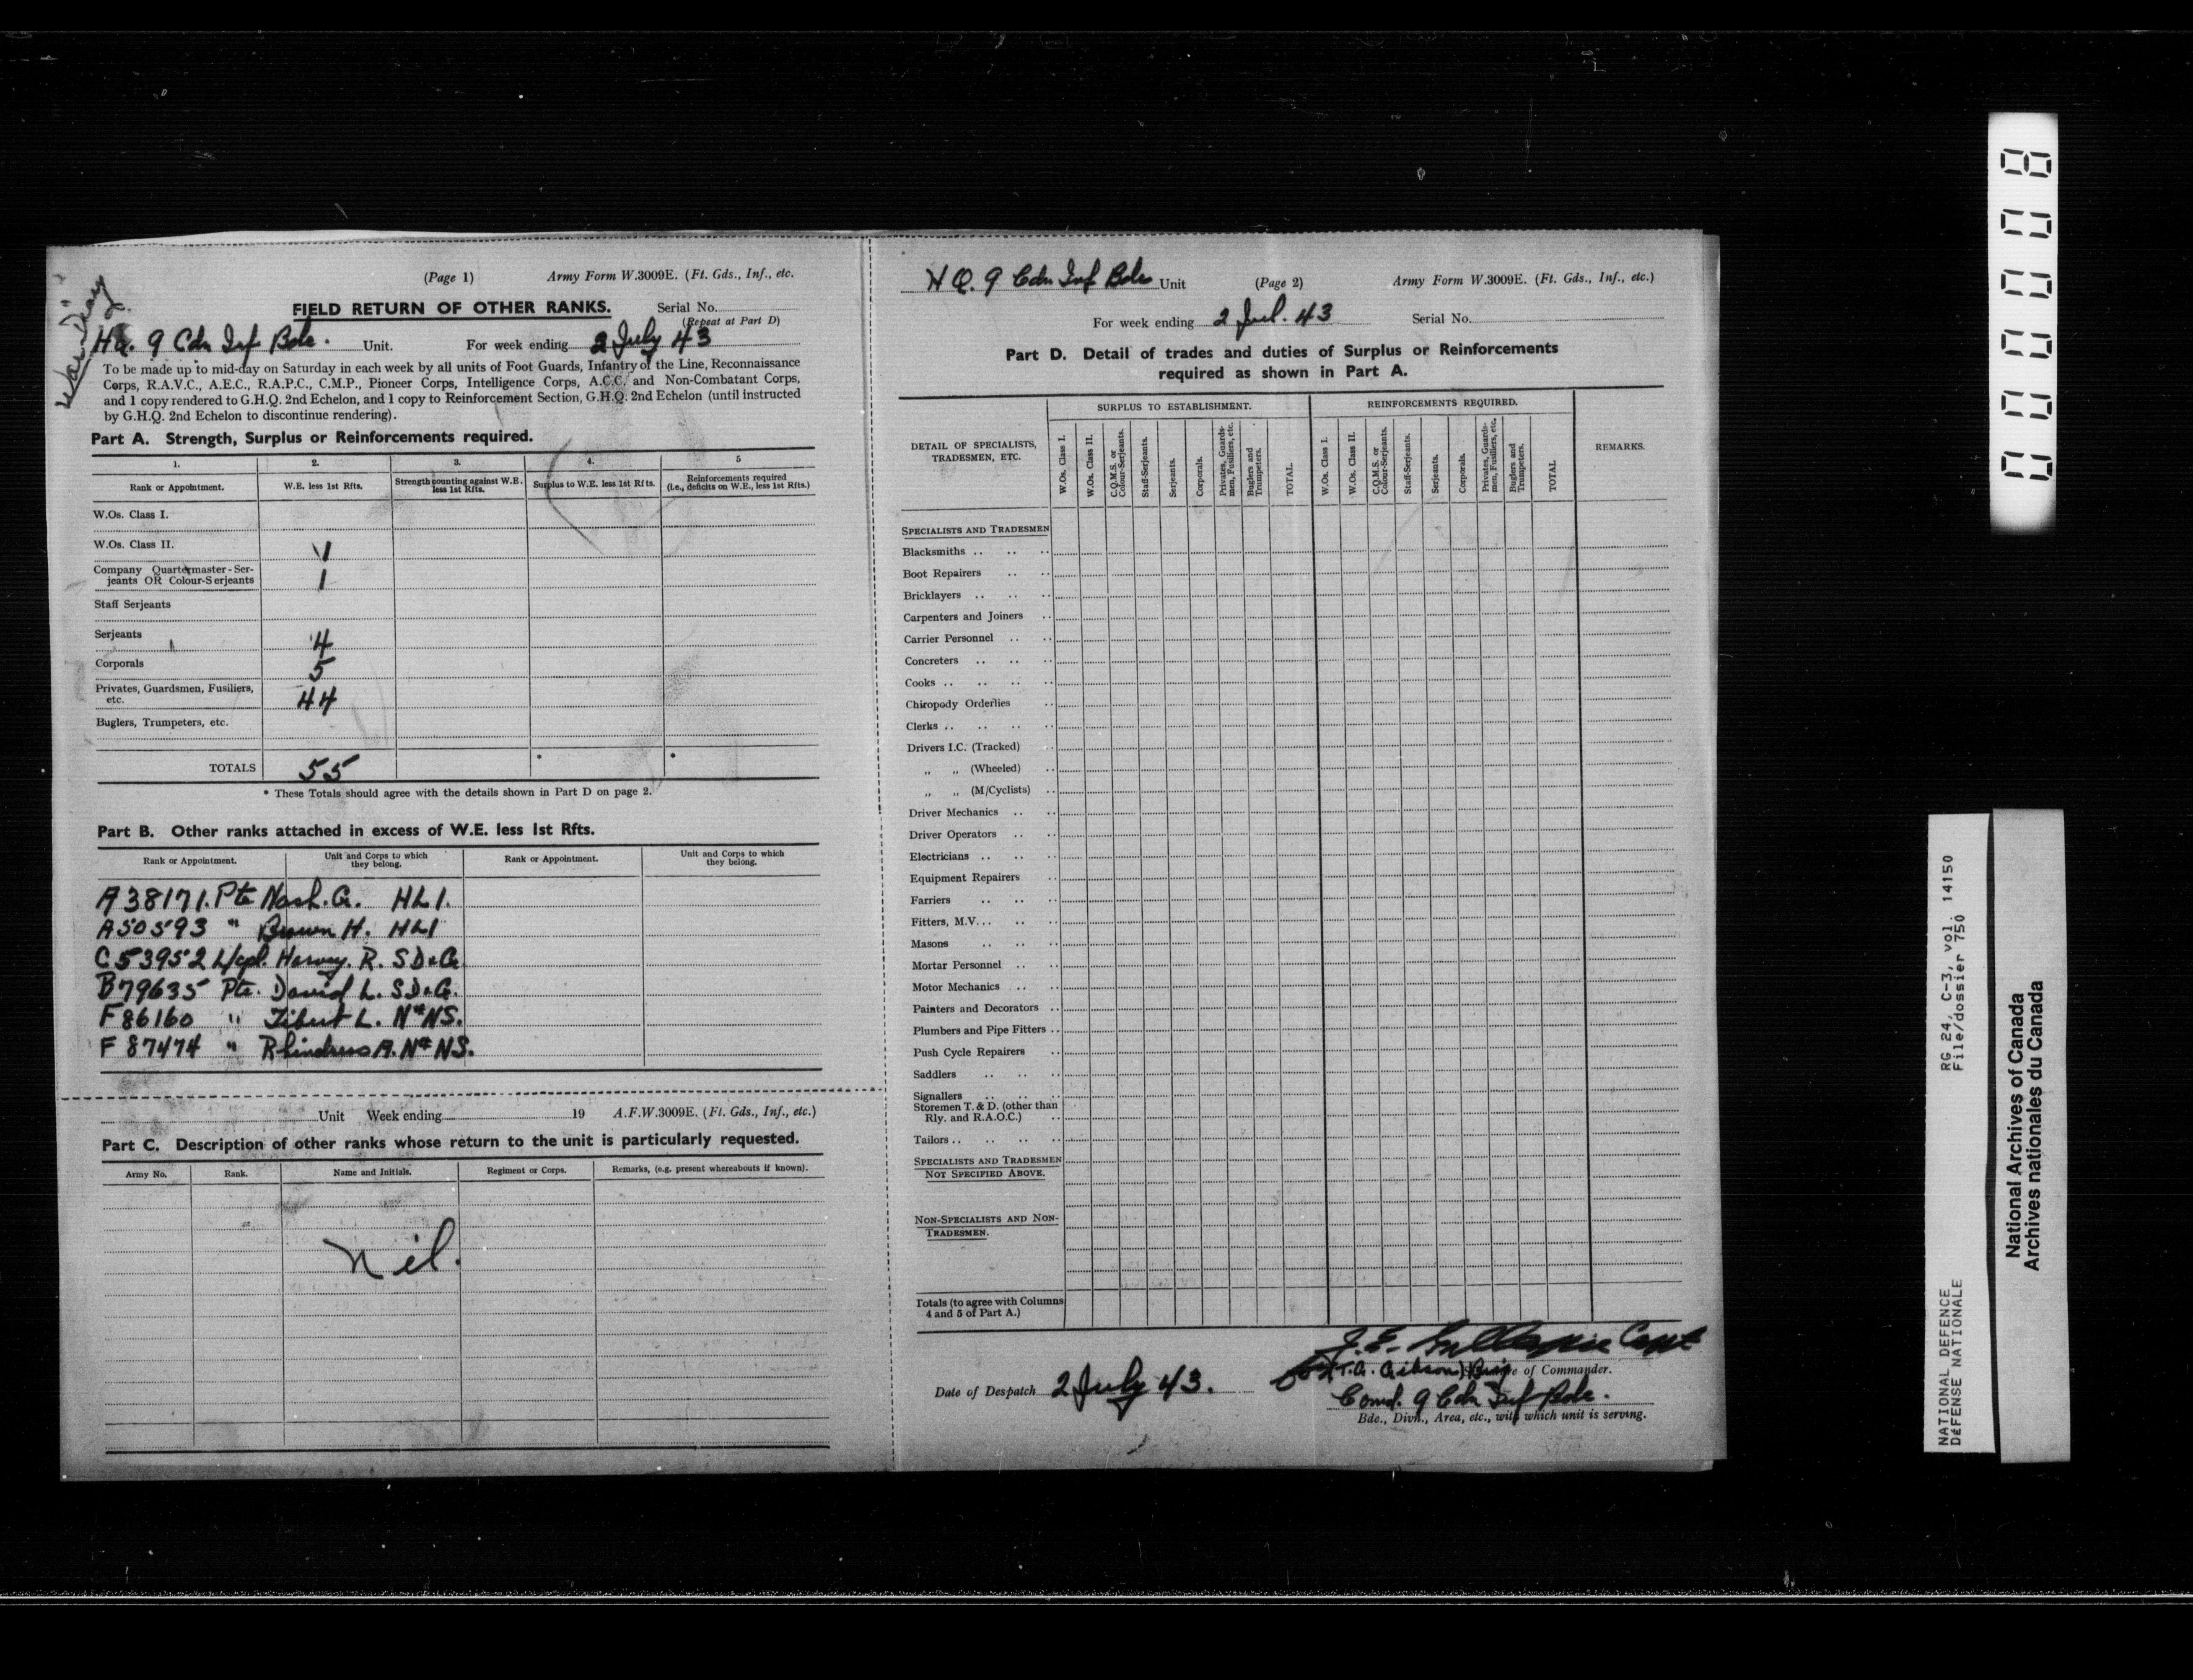 "War Diary"
(Page 1) Army Form W.3009E. (Ft. Gds., Inf., etc.
FIELD RETURN OF OTHER RANKS. Serial No.
(Repeat at Part D)
HQ. 9 Cdn Inf Bde. Unit. For week ending 2 July 43
To be made up to mid-day on Saturday in each week by all units of Foot Guards, Infantry of the Line, Reconnaissance
Corps, R.A.V.C., A.E.C., R.A.P.C., C.M.P., Pioneer Corps, Intelligence Corps, A.C.C. and Non-Combatant Corps,
and 1 copy rendered to G.H.Q. 2nd Echelon, and 1 copy to Reinforcement Section, G.H.Q. 2nd Echelon (until instructed
by G.H.Q. 2nd Echelon to discontinue rendering).
Part A. Strength, Surplus or Reinforcements required.
1. 2. 3. 4. 5
Rank or Appointment. W.E. less 1st Rfts. Strength counting against W.E. less 1st Rfts. Surplus to W.E. less 1st Rfts. Reinforcements required (i.e., deficits on W.E., less 1st Rfts.)
W.Os. Class I.
W.Os. Class II. 1
Company Quartermaster-Ser-
jeants OR Colour-Serjeants 1
Staff Serjeants
Serjeants 4
Corporals 5
Privates, Guardsmen, Fusiliers,
etc. 44
Buglers, Trumpeters, etc.
TOTALS 55 * *
* These Totals should agree with the details shown in Part D on page 2.
Part B. Other ranks attached in excess of W.E. less 1st Rfts.
Rank or Appointment. Unit and Corps to which they belong. Rank or Appointment. Unit and Corps to which they belong.
A38171. Pte Nash. G. HLI.
A50593 " Brown H. HLI
C53952 L/cpl. Harvey. R. SD&G.
B79635 Pte. David L. SD&G.
F86160 " Tibert L. Nth NS.
F 87474 " Rhindress A. Nth NS.
Unit Week ending 19 A.F.W.3009E. (Ft. Gds., Inf., etc.)
Part C. Description of other ranks whose return to the unit is particularly requested.
Army No. Rank. Name and Initials. Regiment or Corps. Remarks, (e.g. present whereabouts if known).
Nil.
HQ. 9 Cdn Inf Bde Unit (Page 2) Army Form W.3009E. (Ft. Gds., Inf., etc.)
For week ending 2 Jul. 43 Serial No.
Part D. Detail of trades and duties of Surplus or Reinforcements
required as shown in Part A.
DETAIL OF SPECIALISTS, TRADESMEN, ETC. SURPLUS TO ESTABLISHMENT. REINFORCEMENTS REQUIRED. REMARKS.
W.Os. Class I. W.Os. Class II. C.Q.M.S. or Colour-Serjeants. Staff-Serjeants. Serjeants. Corporals. Privates, Guardsmen, Fusiliers, etc. Buglers and Trumpeters. TOTAL.
W.Os. Class I. W.Os. Class II. C.Q.M.S. or Colour-Serjeants. Staff-Serjeants. Serjeants. Corporals. Privates, Guardsmen, Fusiliers, etc. Buglers and Trumpeters. TOTAL
SPECIALISTS AND TRADESMEN
Blacksmiths
Boot Repairers
Bricklayers
Carpenters and Joiners
Carrier Personnel
Concreters
Cooks
Chiropody Orderlies
Clerks
Drivers I.C. (Tracked)
,, ,, (Wheeled)
,, ,, (M/Cyclists)
Driver Mechanics
Driver Operators
Electricians
Equipment Repairers
Farriers
Fitters, M.V.
Masons
Mortar Personnel
Motor Mechanics
Painters and Decorators
Plumbers and Pipe Fitters
Push Cycle Repairers
Saddlers
Signallers
Storemen T. & D. (other than
Rly. and R.A.O.C.)
Tailors
SPECIALISTS AND TRADESMEN
NOT SPECIFIED ABOVE.
NON-SPECIALISTS AND NON-
TRADESMEN.
Totals (to agree with Columns
4 and 5 of Part A.)
J.E. Gillespie Capt
for (T.G. Gibson) Brig of Commander.
Date of Despatch 2 July 43.
Comd. 9 Cdn Inf Bde.
Bde., Divn., Area, etc., with which unit is serving.
00008
RG 24, C-3, vol. 14150
File/dossier 750
NATIONAL DEFENCE
DÉFENSE NATIONALE
National Archives of Canada
Archives nationales du Canada